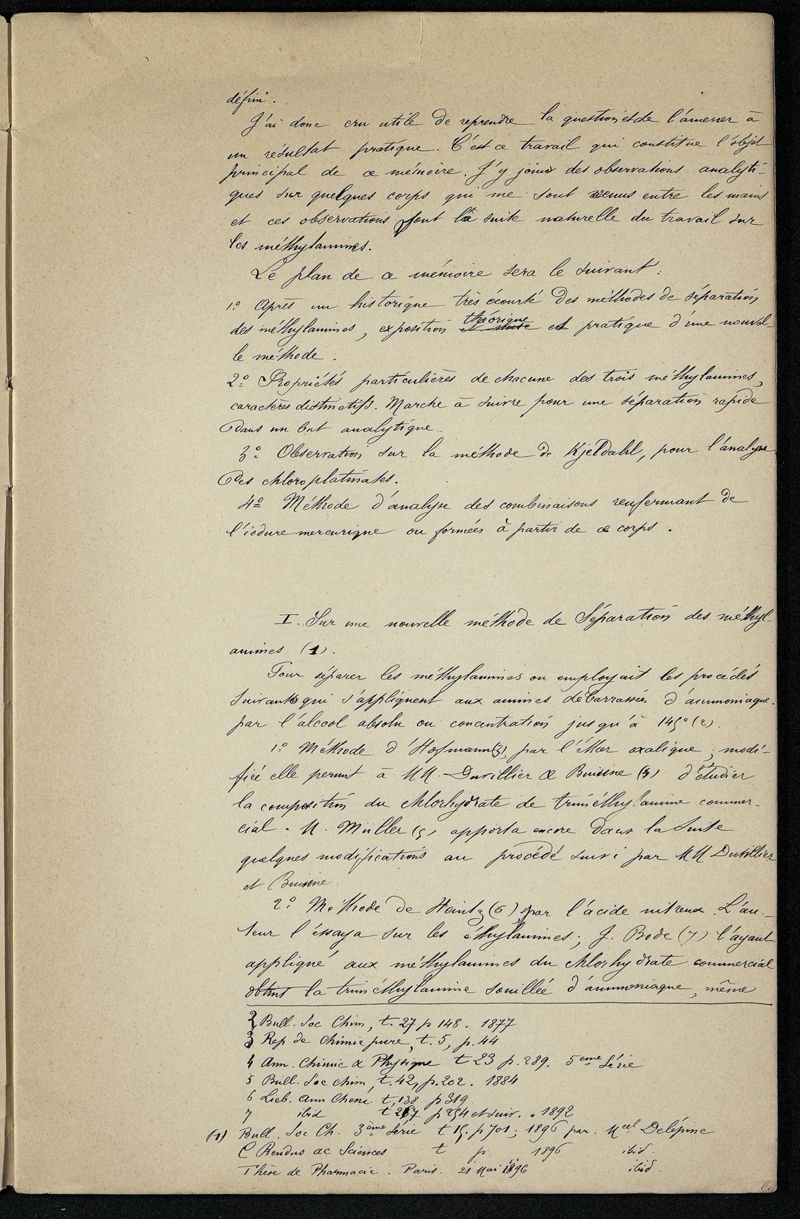 défini.
J'ai donc cru utile de reprendre la question et de l'amener à
un résultat pratique. C'est ce travail qui constitue l'objet
principal de ce mémoire. J'y joins des observations analyti-
ques sur quelques corps qui me sont venus entre les mains
et ces observations font la suite naturelle du travail sur
les méthylamines.
Le plan de ce mémoire sera le suivant :
1º Après un historique très écourté des méthodes de séparation
des méthylamines, exposition théorique et pratique d'une nouvel-
le méthode.
2º Propriétés particulières de chacune des trois méthylamines,
caractères distinctifs. Marche à suivre pour une séparation rapide
dans un but analytique.
3º Observation sur la méthode de Kjeldahl, pour l'analyse
des chloroplatinates.
4º Méthode d'analyse des combinaisons renfermant de
l'iodure mercurique ou formées à partir de ce corps.
I. Sur une nouvelle méthode de séparation des méthyl-
amines (1).
Pour séparer les méthylamines on employait les procédés
suivants qui s'appliquent aux amines débarrassées d'ammoniaque.
par l'alcool absolu ou concentration jusqu'à 145º (2).
1º Méthode d'Hofmann (3) par l'éther oxalique; modi-
fiée elle permit à MM. Duvillier & Buisine (4) d'étudier
la composition du chlorhydrate de triméthylamine commer-
cial. M. Müller (5) apporta encore dans la suite
quelques modifications au procédé suivi par MM Duvillier
et Buisine.
2º Méthode de Heintz (6) par l'acide nitreux. L'au-
teur l'essaya sur les éthylamines; J. Bode (7) l'ayant
appliqué aux méthylamines du chlorhydrate commercial
obtint la triméthylamine souillée d'ammoniaque, même
2 Bull. Soc Chim, t. 27 p 148. 1877
3 Rep de chimie pure, t. 5, p. 44
4 Ann. Chimie & Physique t 23 p. 289. 5eme Série
5 Bull. Soc chim, t. 42, p. 202. 1884
6 Lieb. Ann Chem. t, 138 p 319
7 ibid t 267 p 254 et suiv. 1892
(1) Bull. Soc Ch. 3ème Série t 15, p 701, 1896 par Mcel Delépine
C Rendus ac Sciences t p. 1896 ibid.
Thèse de Pharmacie. Paris. 21 Mai 1896 ibid.